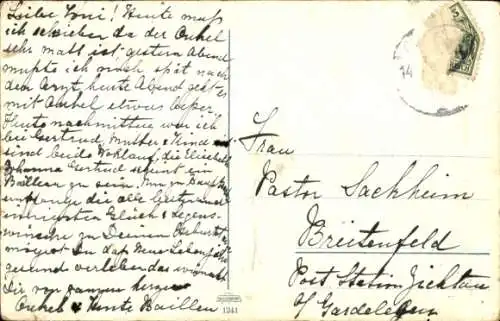 Liebe Toni! Heute muß
ich schreiben da der Onkel
sehr matt ist, gestern Abend
mußte ich noch spät nach
dem Arzt, heute Abend geht es
mit Onkel etwas besser.
Heute nachmittag war ich
bei Gertrud, Mutter & Kind
sind beide Wohlauf, die
Johanna Gertrud scheint ein
Baillen zu sein. Nun zu
empfange die alle
innigsten Glück & Segens
wünsche zu Deinem Geburtstag
mögest Du das Neue Lebensjahr
gesund verleben das wünscht
Dir von ganzem Herzen
Onkel & Tante Baillen
Frau
Pastor Sachheim
Breitenfeld
Post Station Zichtau
b/ Gardelegen
14
1241